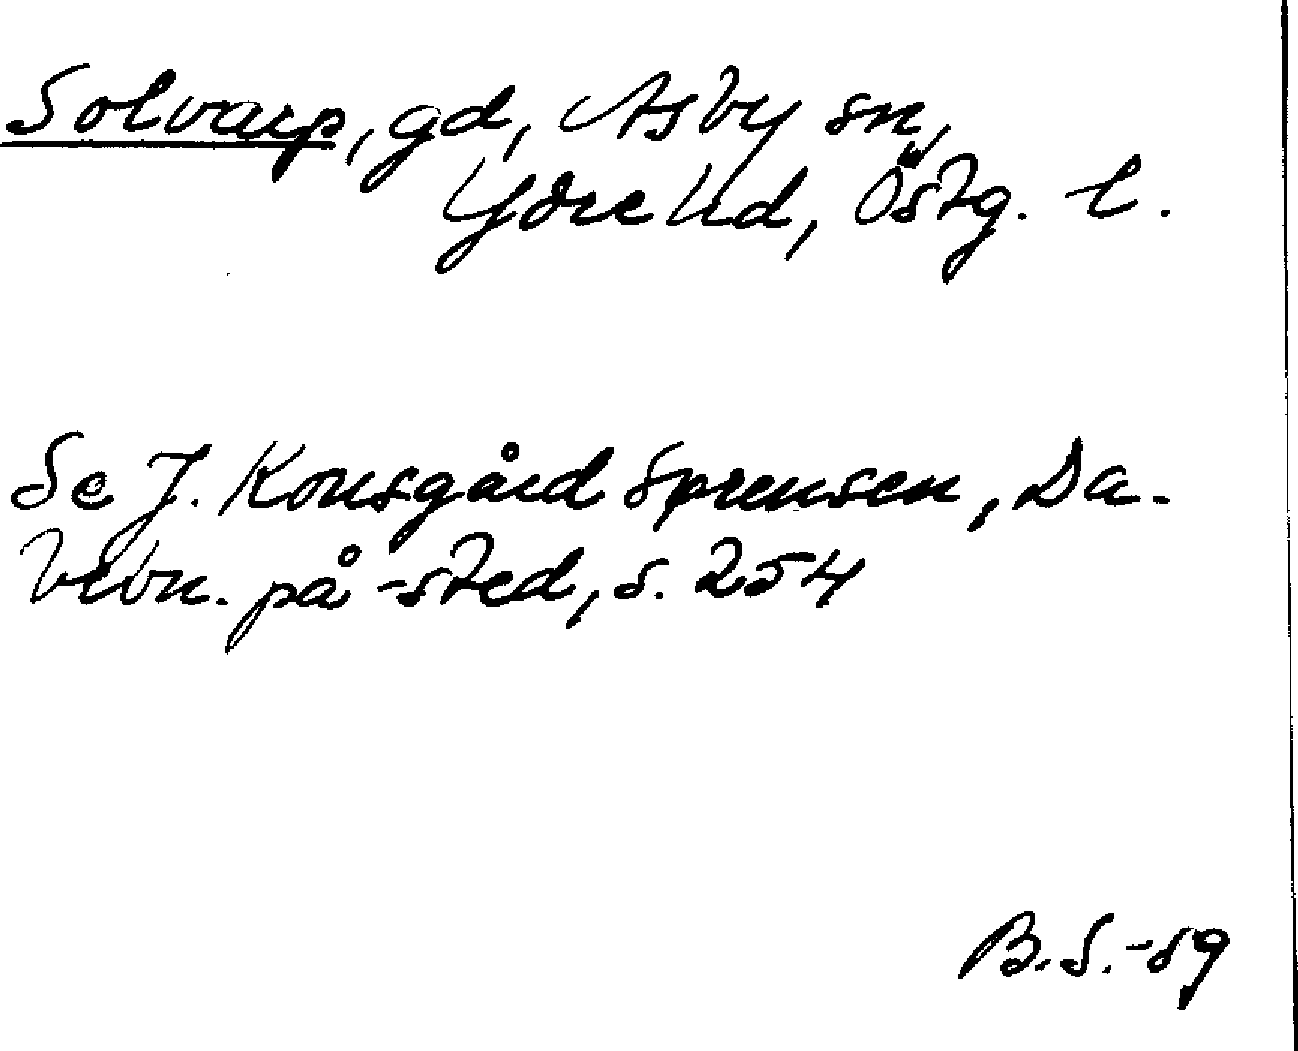 Solvarp, gd, Asby sn,
Ydre hd, Östg. l.
Se J. Kousgård Sørensen, Da-
bebn. på -sted, s. 254
B. S. -59